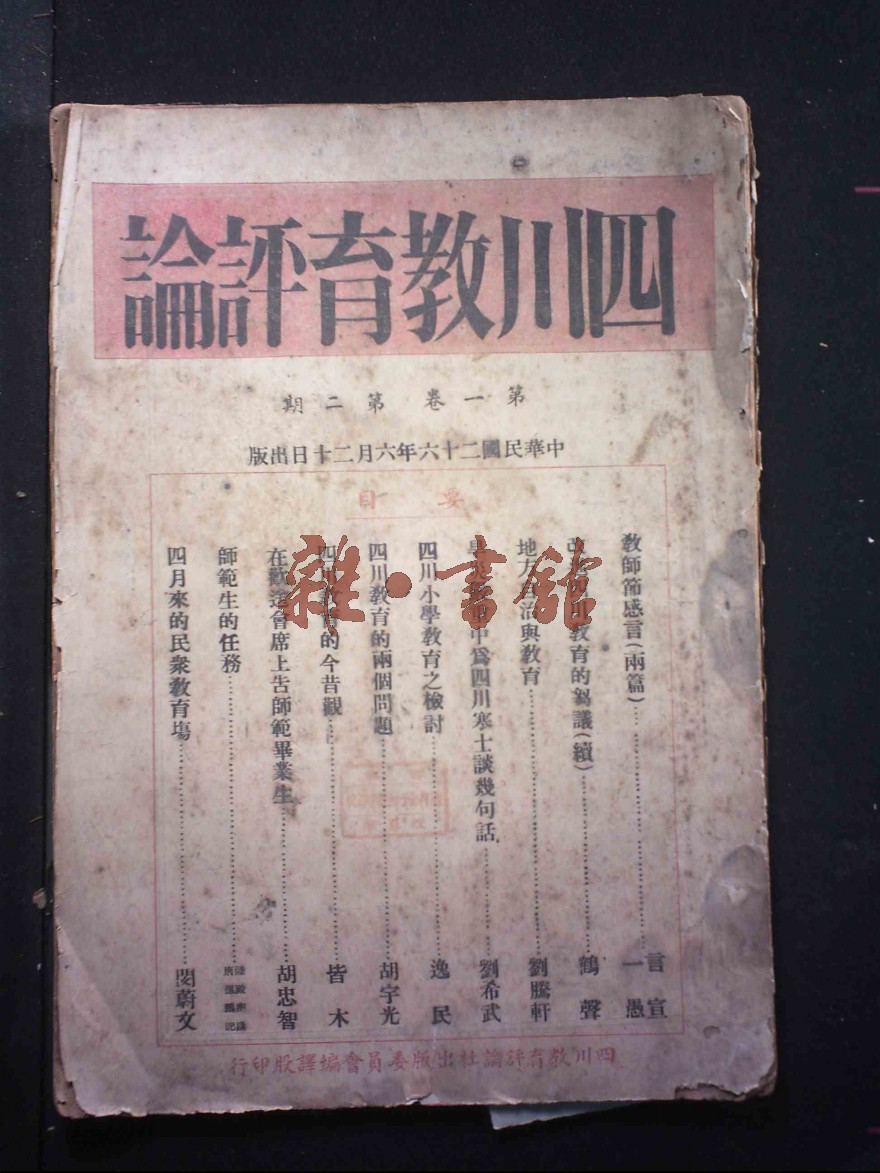 四川教育評論
第一卷 第二期
中華民國二十六年六月二十日出版
要目
教師節感言(兩篇)⋯⋯言宣 一愚
教育的芻議(續)⋯⋯鶴聲
地方自治與教育⋯⋯劉騰軒
中爲四川寒士談幾句話⋯⋯劉希武
四川小學教育之檢討⋯⋯逸民
四川教育的兩個問題⋯⋯胡宇光
四川教育的今昔觀⋯⋯皆木
在歡送會席上告師範畢業生⋯⋯胡忠智
師範生的任務⋯⋯
四月來的民衆敎育塲⋯⋯閔蔚文
四川教育評論社出版委員會編譯股印行
雜·書館